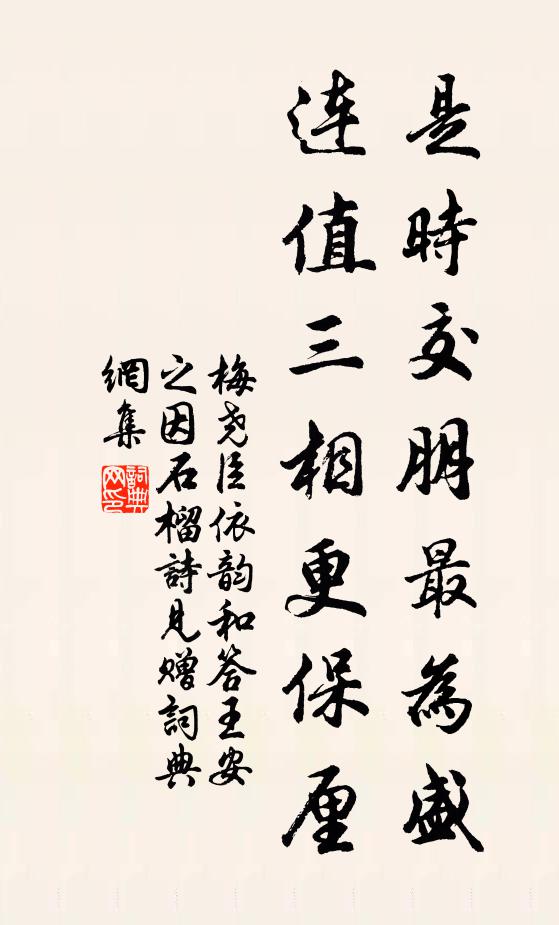 是時交朋最為盛
連值三相更保厘
梅尧臣依韵和答王安
之因石榴詩見贈詞典
網集
詞典網印